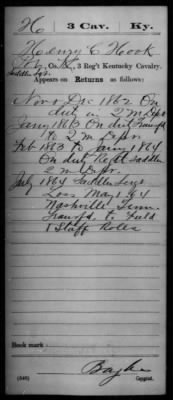 H 3 Cav. Ky.
Henry C Hook
Co. H, 3 Reg't Kentucky Cavalry.
Saddler Sgt.
Appears on Returns as follows:
Nov & Dec 1862 On
duty in Q M Dept
Jany 1863 On duty Transfd
to Q M Dept
Feb 1863 to Jany 1864
On duty Regt Saddler
Q M Dpr.
July 1864 Saddler Sergt
Loss May 1 64
Nashville Tenn.
Transfd. to Field
& Staff Rolls
Book mark:
(546)
Copyist.